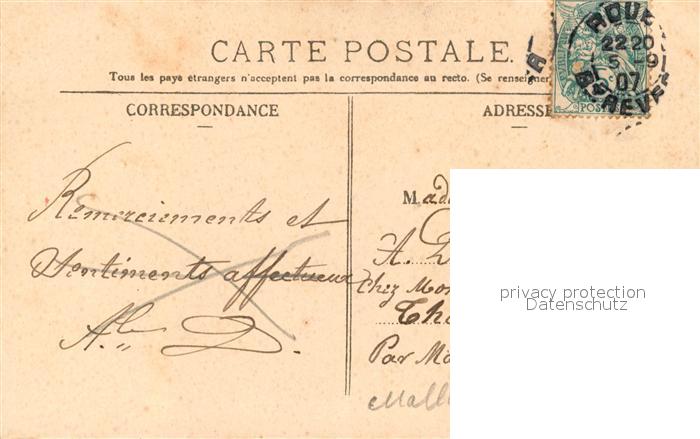 CARTE POSTALE.
Tous les pays étrangers n'acceptent pas la correspondance au recto. (Se renseigner
CORRESPONDANCE
ADRESSE
ROUE
22 20
5 9
07
B. REVE
POSTE
Remerciements et
Sentiments affectueux
A.
Mada
A. D
Chez Mon
Par Ma
privacy protection
Datenschutz